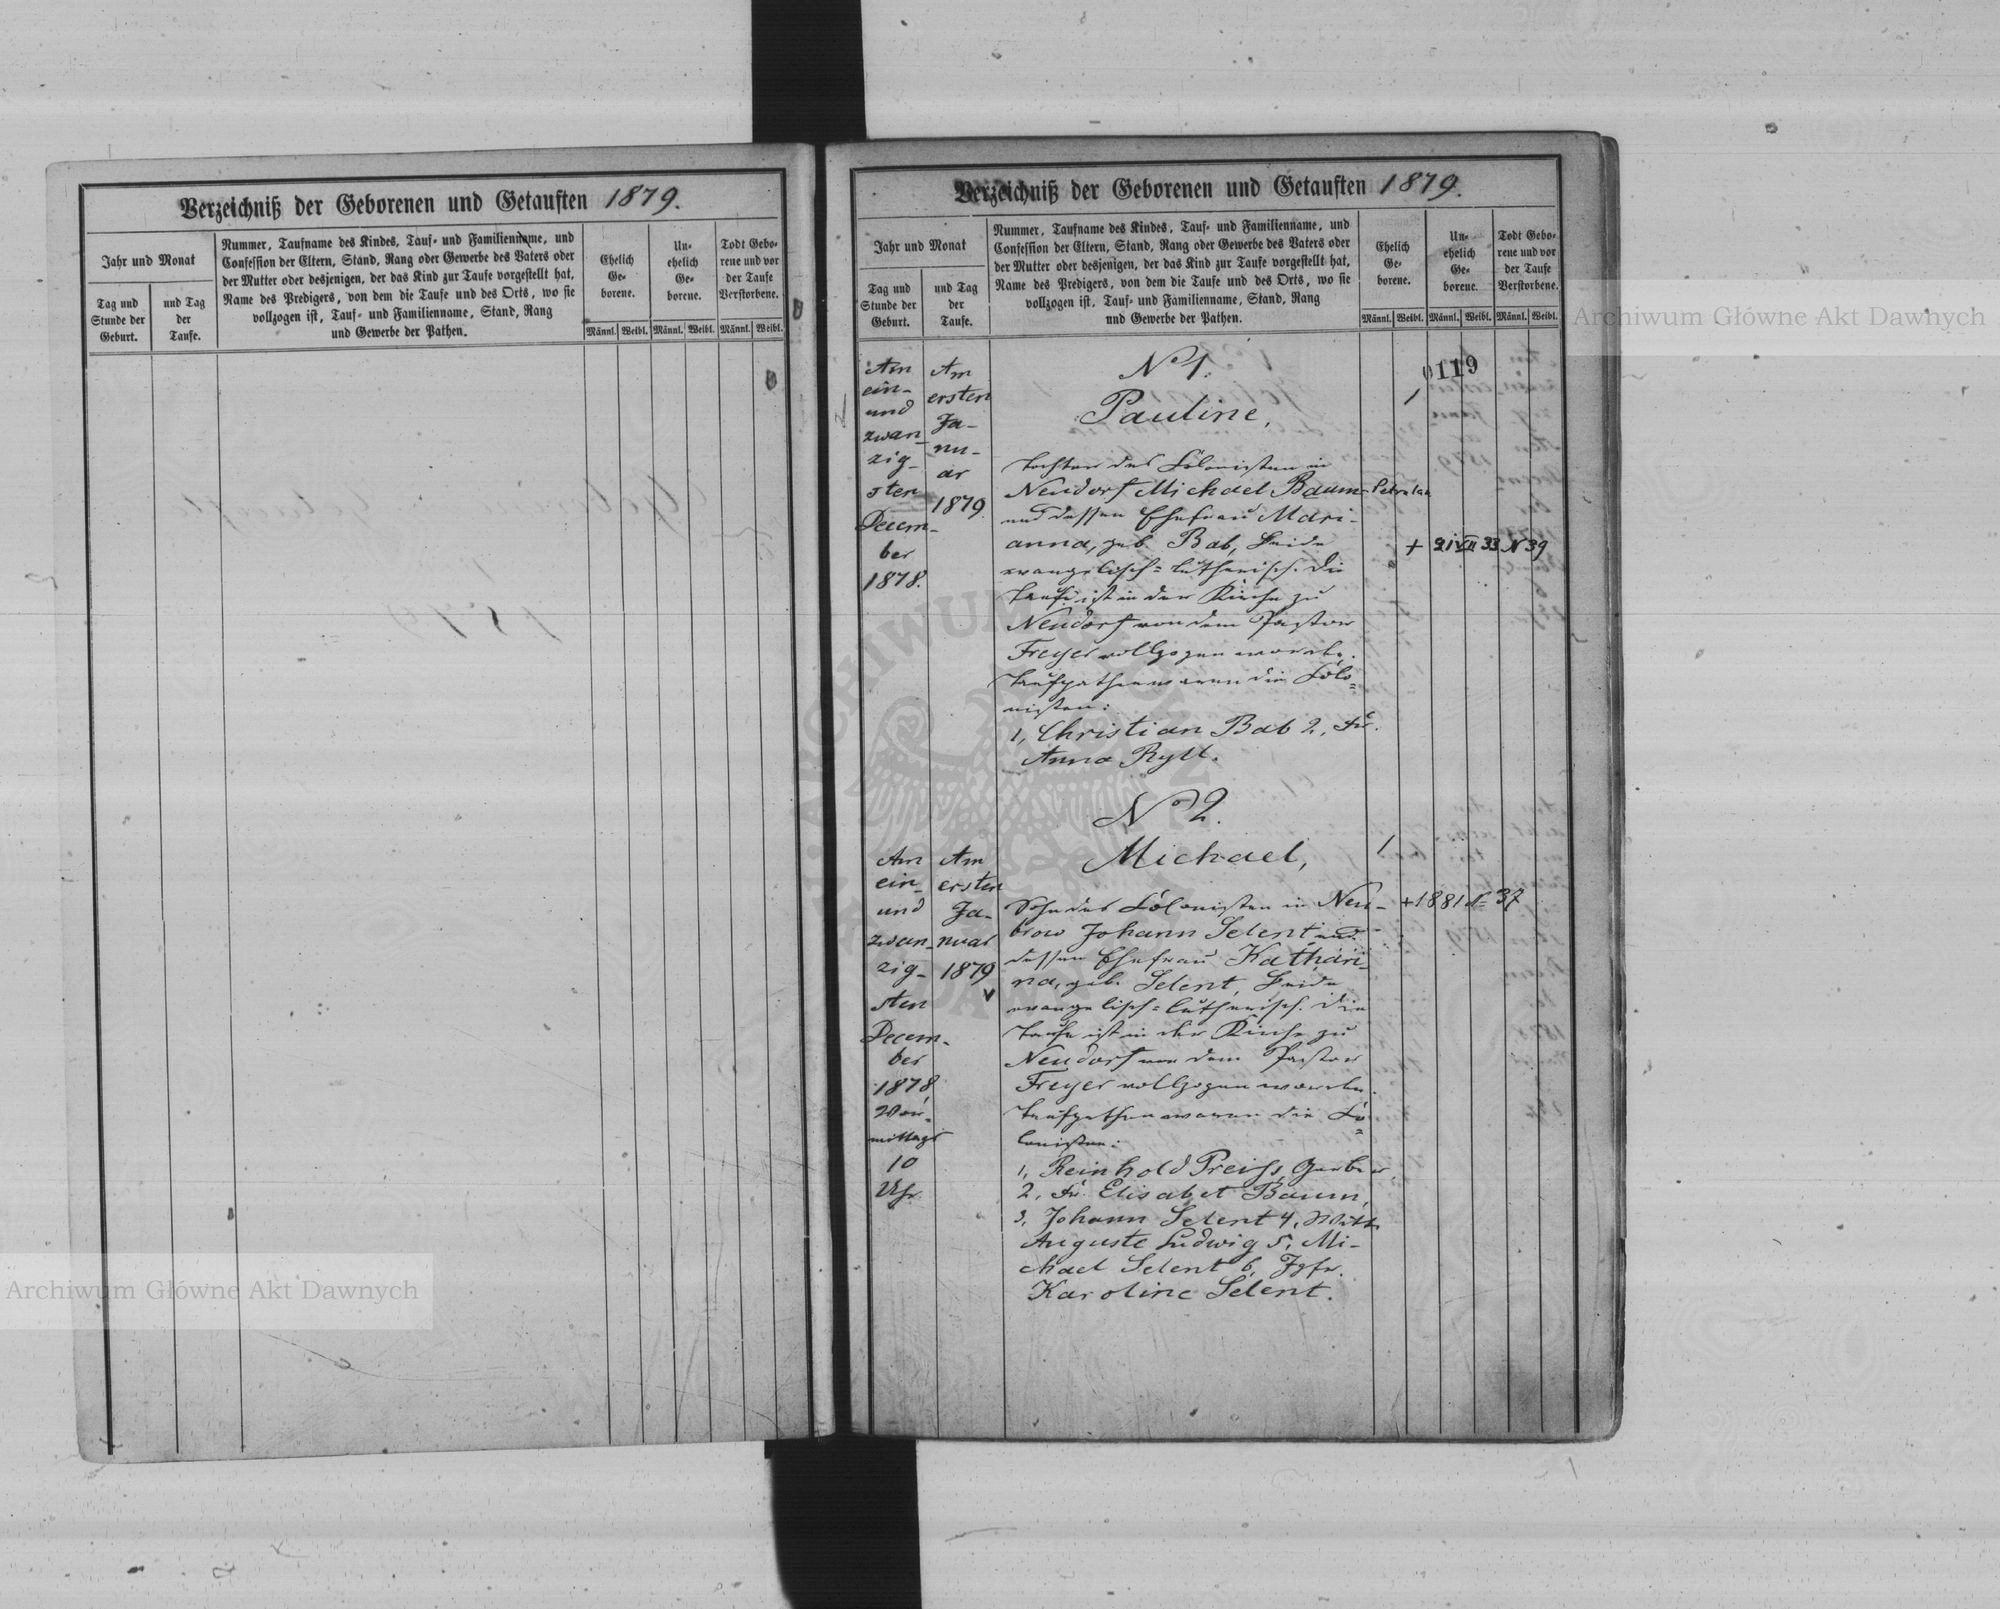 Verzeichniß der Geborenen und Getauften 1879.
Jahr und Monat
Tag und
Stunde der
Geburt.
und Tag
der
Taufe.
Nummer, Taufname des Kindes, Tauf- und Familienname, und
Confession der Eltern, Stand, Rang oder Gewerbe des Vaters oder
der Mutter oder desjenigen, der das Kind zur Taufe vorgestellt hat,
Name des Predigers, von dem die Taufe und des Orts, wo sie
vollzogen ist, Tauf- und Familienname, Stand, Rang
und Gewerbe der Pathen.
Ehelich
Ge-
borene.
Un-
ehelich
Ge-
borene.
Todt Gebo-
rene und vor
der Taufe
Verstorbene.
Männl. Weibl. Männl. Weibl. Männl. Weibl.
Verzeichniß der Geborenen und Getauften 1879.
Jahr und Monat
Tag und
Stunde der
Geburt.
und Tag
der
Taufe.
Nummer, Taufname des Kindes, Tauf- und Familienname, und
Confession der Eltern, Stand, Rang oder Gewerbe des Vaters oder
der Mutter oder desjenigen, der das Kind zur Taufe vorgestellt hat,
Name des Predigers, von dem die Taufe und des Orts, wo sie
vollzogen ist, Tauf- und Familienname, Stand, Rang
und Gewerbe der Pathen.
Ehelich
Ge-
borene.
Un-
ehelich
Ge-
borene.
Todt Gebo-
rene und vor
der Taufe
Verstorbene.
Männl. Weibl. Männl. Weibl. Männl. Weibl.
0119
Am
ein-
und
zwan-
zig-
sten
Decem-
ber
1878.
Am
ersten
Ja-
nu-
ar
1879.
No 1.
Pauline,
Tochter des Colonisten in
Neudorf Michael Baum
und dessen Ehefrau Mari-
anna, geb. Bab, beide
evangelisch-lutherisch. Die
Taufe ist in der Kirche zu
Neudorf von dem Pastor
Freyer vollzogen worden.
Taufpathen waren die Colo-
nisten:
1, Christian Bab 2, Fr.
Anna Ryll.
1
+ 21 VII 33 N 39
Am
ein-
und
zwan-
zig-
sten
Decem-
ber
1878
Vor-
mittags
10
Uhr.
Am
ersten
Ja-
nuar
1879
No 2.
Michael,
Sohn des Colonisten in Neu-
brow Johann Selent und
dessen Ehefrau Kathari-
na, geb. Selent, beide
evangelisch-lutherisch. Die
Taufe ist in der Kirche zu
Neudorf von dem Pastor
Freyer vollzogen worden.
Taufpathen waren die Co-
lonisten:
1, Reinhold Preiss, Gerber
2, Fr. Elisabet Baum,
3, Johann Selent 4, Wittw.
Auguste Ludwig 5, Mi-
chael Selent 6, Jgfr.
Karoline Selent.
1
+ 1881 N 37
Archiwum Główne Akt Dawnych
Archiwum Główne Akt Dawnych